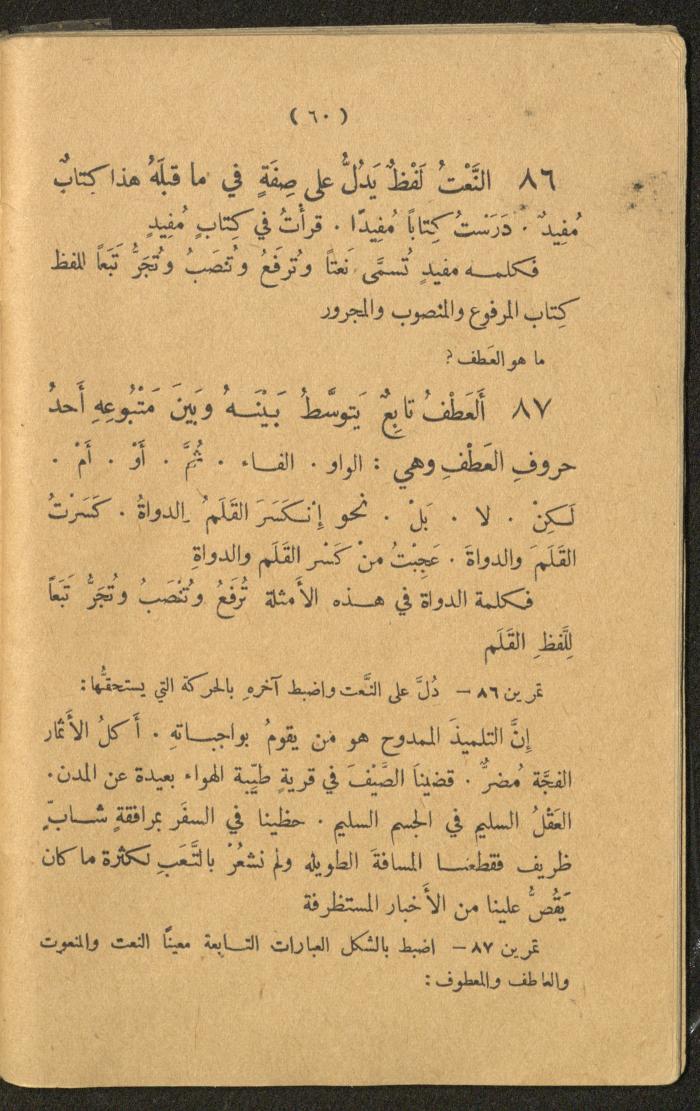 ( ٦٠ )
٨٦ النَّعْتُ لَفْظٌ يَدُلُّ على صِفَةٍ في ما قبلَهُ هذا كِتابٌ
مُفِيدٌ ٠ دَرَسْتُ كِتاباً مُفِيدًا ٠ قرأْتُ في كِتابٍ مُفِيدٍ
فكلمـه مفيدٍ تُسمَّى نَعتاً وتُرفَعُ وتُنصَبُ وتُجَرُّ تَبَعاً للفظ
كِتاب المرفوع والمنصوب والمجرور
ما هو العَطف ؟
٨٧ أَلعَطْفُ تابِعٌ يَتوسَّطُ بَيْنَـهُ وبَينَ مَتْبُوعِهِ أَحدُ
حروفِ العَطْفِ وهي : الواو ٠ الفـاء ٠ ثُمَّ ٠ أَوْ ٠ أَمْ ٠
لَـكِنْ ٠ لا ٠ بَلْ ٠ نحو إِنْـكَسَرَ القَلَمُ والدواةُ ٠ كَسَرْتُ
القَلَمَ والدواةَ ٠ عَجِبْتُ منْ كَسْر القَلَم والدواةِ
فـكلمة الدواة في هـذه الأَمثلة تُرفَعُ وتُنْصَبُ وتُجَرُّ تَبَعاً
لِلَّفظِ القَلَم
تمرين ٨٦ – دُلَّ على النَّعت واضبط آخرهِ بالحركة التي يستحقُّها :
إِنَّ التلميذَ الممدوح هو مَن يقومُ بواجبـاتهِ ٠ أَكلُ الأَثمار
الفجَّة مُضرٌّ ٠ قضينا الصَّيْفَ في قريةٍ طيِّبة الهواء بعيدة عن المدن ٠
العَقْلُ السليم في الجسم السليم ٠ حظينا في السفَر بمرافقةٍ شـابٍّ
ظريف فقطعنـا المسافةَ الطويله ولم نشعُرْ بالتَّعَبِ لكثرة ما كان
يَقُصُّ علينا من الأَخبار المستظرفة
تمرين ٨٧ – اضبط بالشكل العبارات التـابعة معيناً النعت والمنعوت
والعاطف والمعطوف :